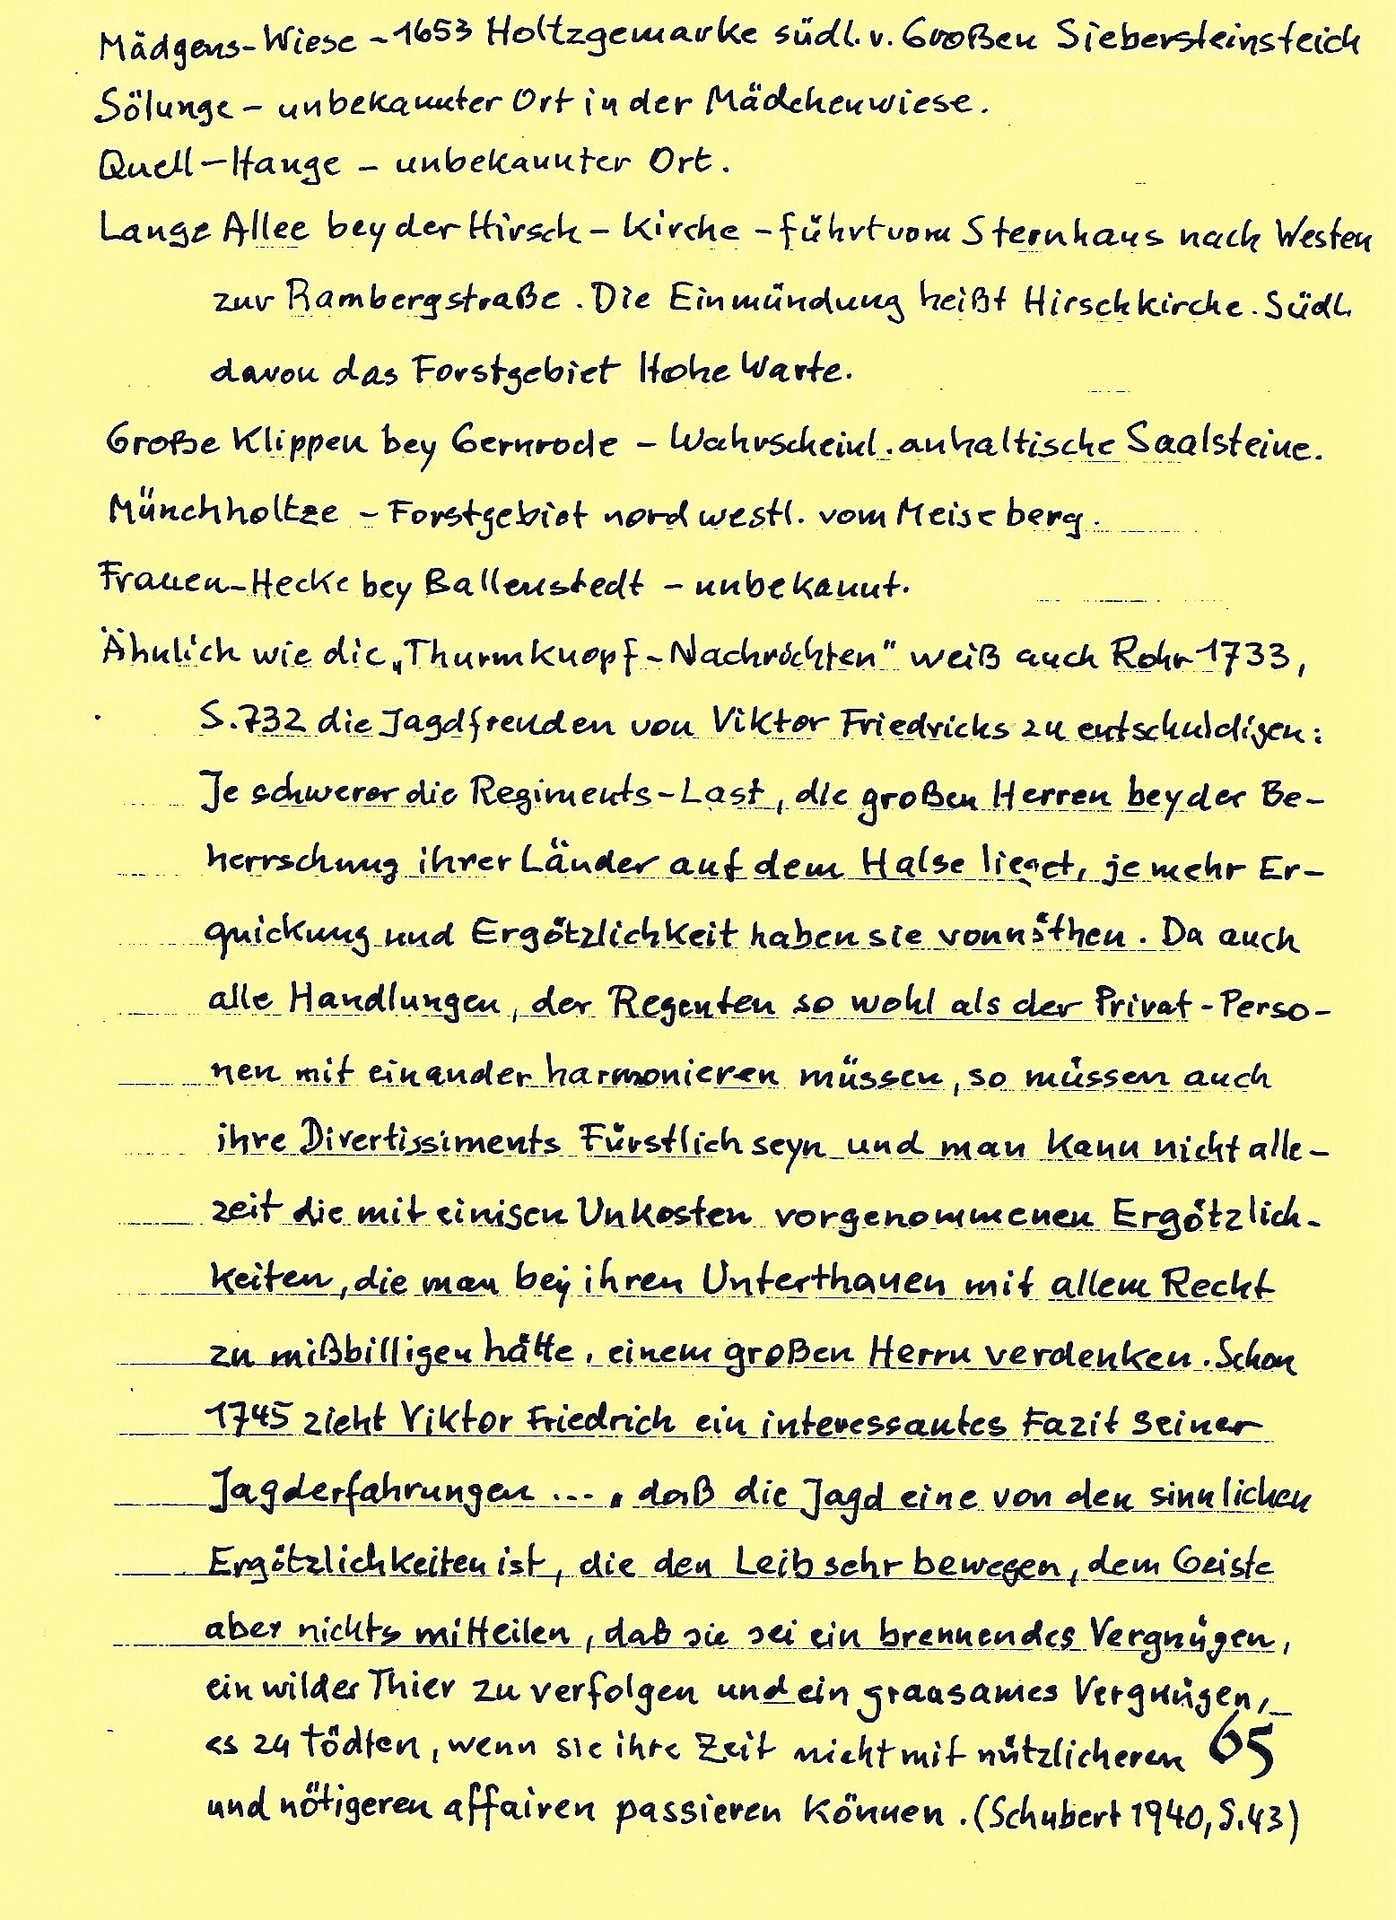 Mädgens-Wiese - 1653 Holtzgemarke südl. v. Großen Siebersteinsteich
Sölunge - unbekannter Ort in der Mädchenwiese.
Quell-Hange - unbekannter Ort.
Lange Allee bey der Hirsch - Kirche - führt vom Sternhaus nach Westen
zur Rambergstraße. Die Einmündung heißt Hirschkirche. Südl.
davon das Forstgebiet Hohe Warte.
Große Klippen bey Gernrode - Wahrscheinl. anhaltische Saalsteine.
Münchholtze - Forstgebiet nordwestl. vom Meiseberg.
Frauen-Hecke bey Ballenstedt - unbekannt.
Ähnlich wie die „Thurmknopf-Nachrichten" weiß auch Rohr 1733,
S. 732 die Jagdfreuden von Viktor Friedrichs zu entschuldigen:
Je schwerer die Regiments-Last, die großen Herren bey der Be-
herrschung ihrer Länder auf dem Halse lieget, je mehr Er-
quickung und Ergötzlichkeit haben sie vonnöthen. Da auch
alle Handlungen, der Regenten so wohl als der Privat-Perso-
nen mit einander harmonieren müssen, so müssen auch
ihre Divertissiments Fürstlich seyn und man kann nicht alle-
zeit die mit einigen Unkosten vorgenommenen Ergötzlich-
keiten, die man bey ihren Unterthanen mit allem Recht
zu mißbilligen hätte, einem großen Herrn verdenken. Schon
1745 zieht Viktor Friedrich ein interessantes Fazit seiner
Jagderfahrungen ..., daß die Jagd eine von den sinnlichen
Ergötzlichkeiten ist, die den Leib sehr bewegen, dem Geiste
aber nichts mitteilen, daß sie sei ein brennendes Vergnügen,
ein wildes Thier zu verfolgen und ein graasames Vergnügen,
es zu tödten, wenn sie ihre Zeit nicht mit nützlicheren 65
und nötigeren affairen passieren können. (Schubert 1940, S. 43)